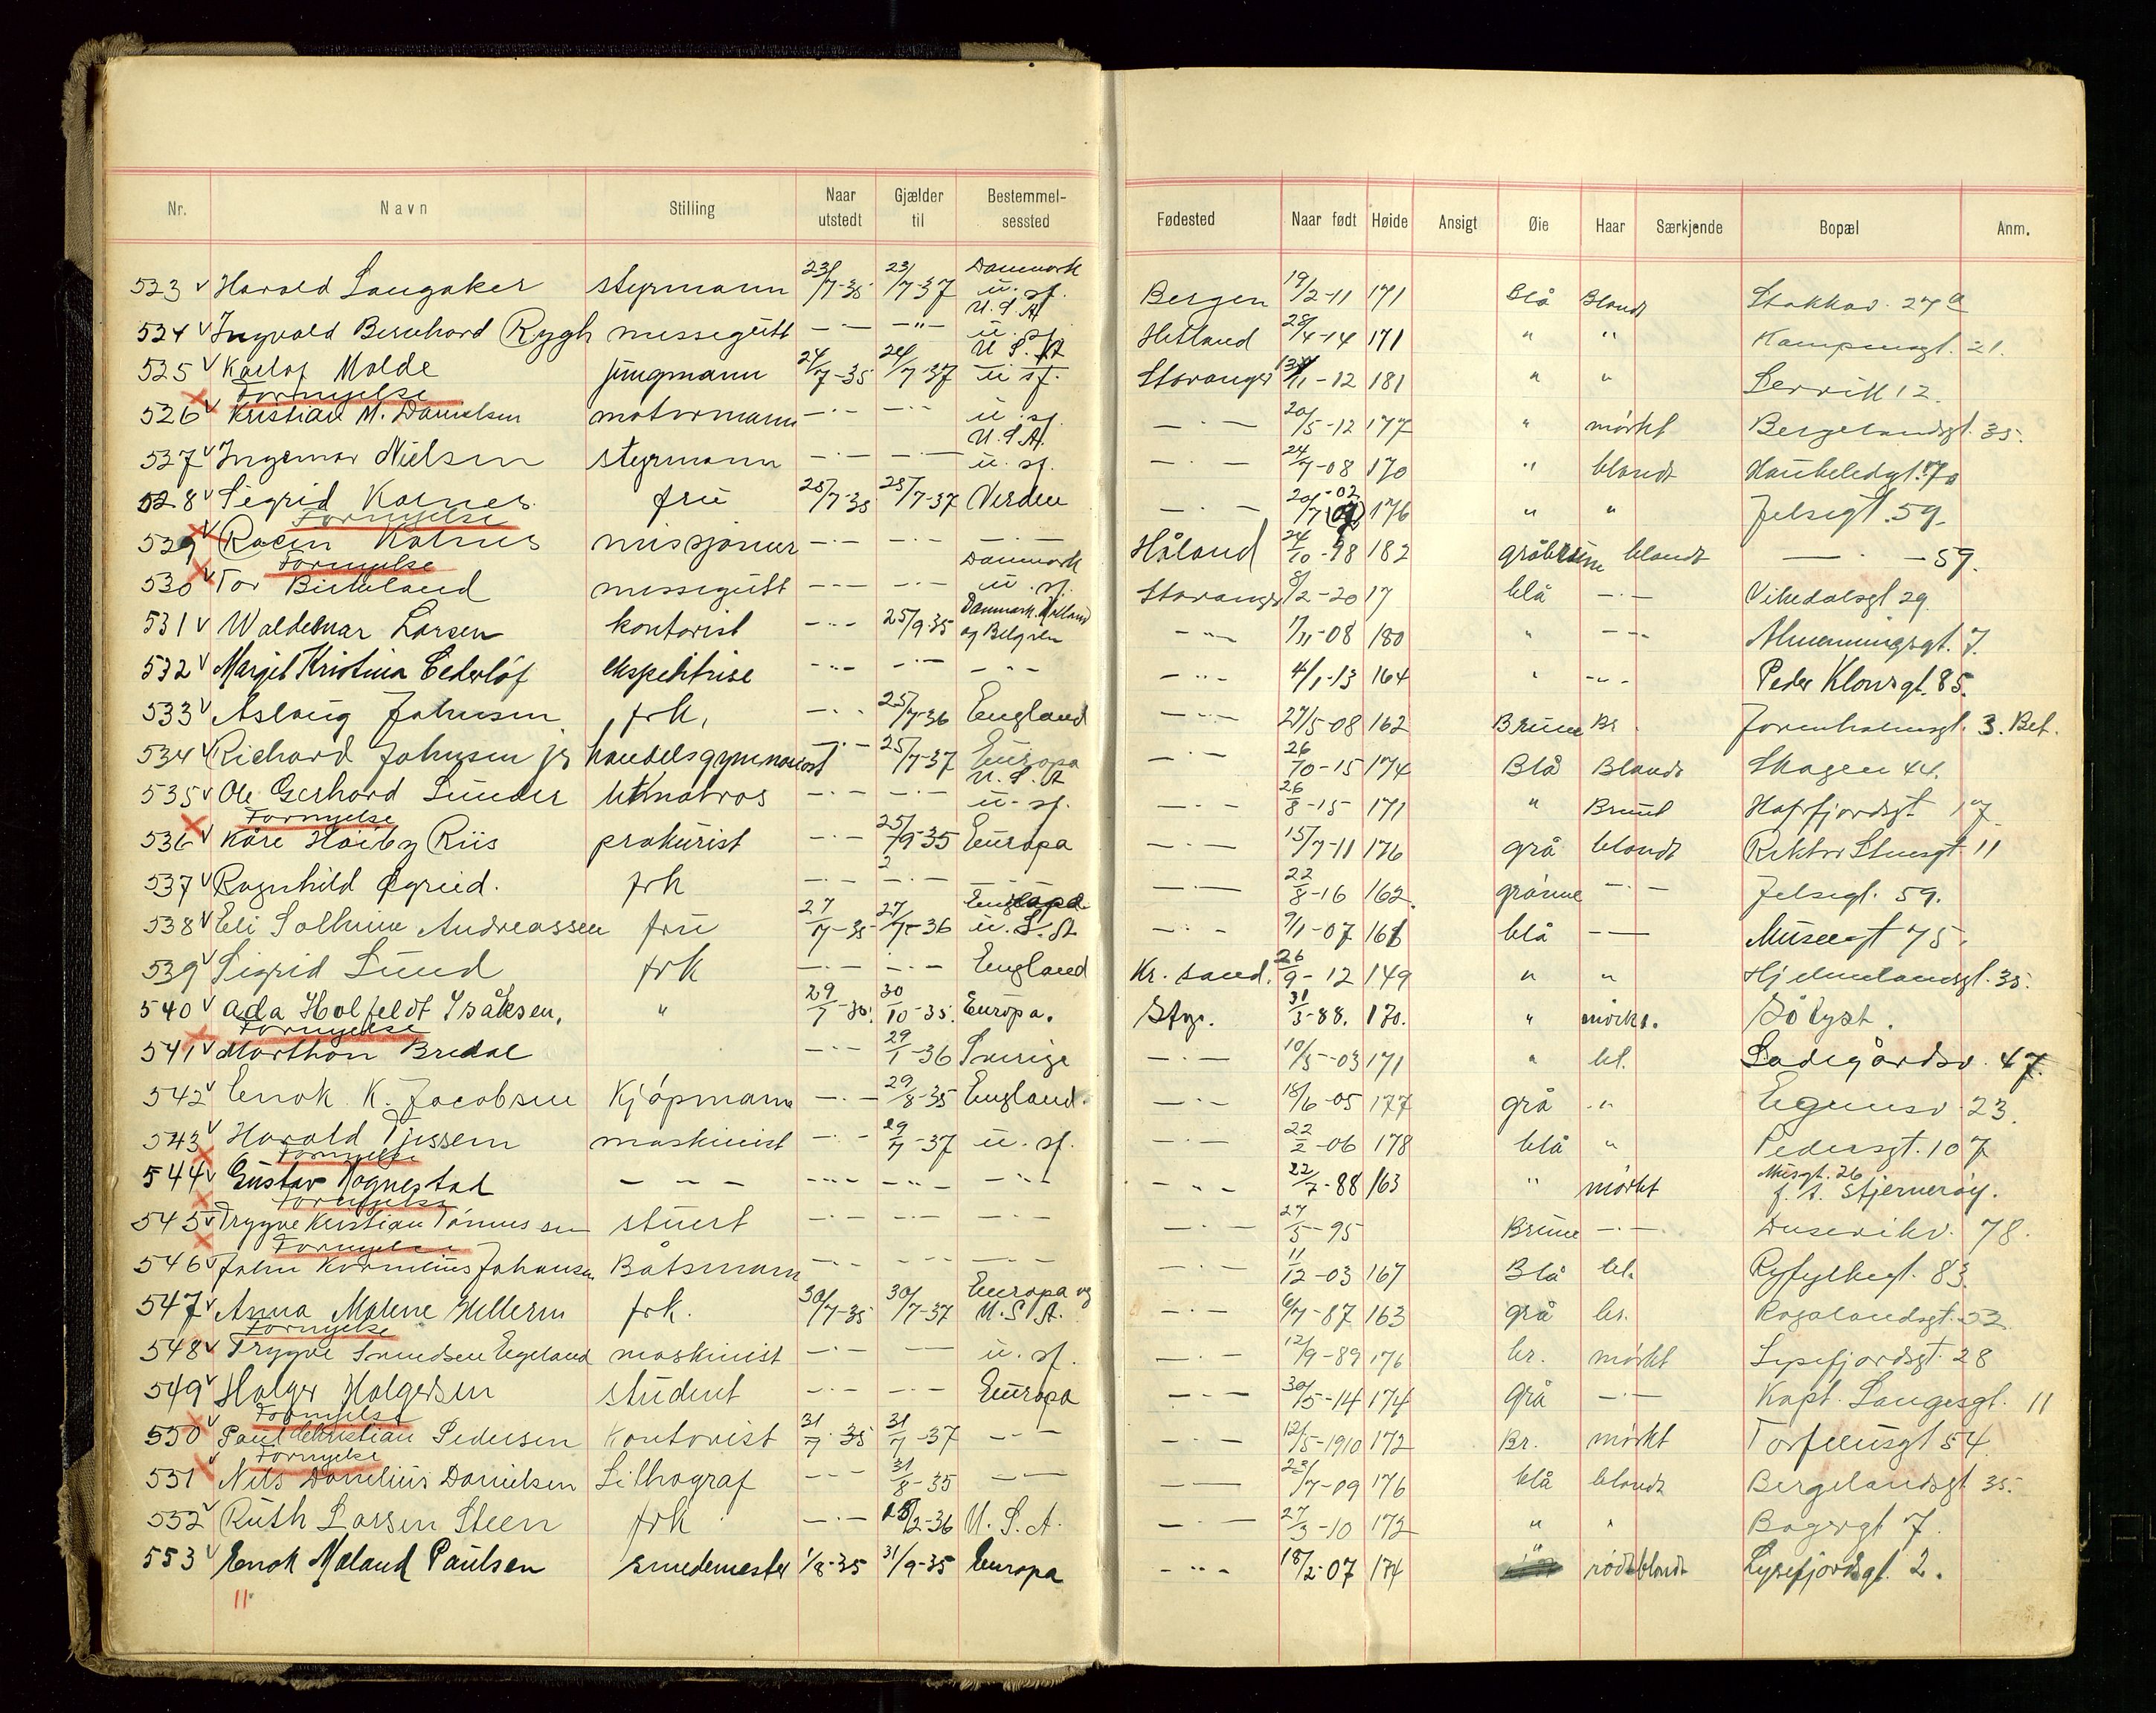 Nr. Navn Stilling Naar utstedt Gjælder til Bestemmel-sessted Fødested Naar født Høide Ansigt Øie Haar Særkjende Bopæl Anm.
523 v Harald Langaker styrmann 23/7-35 23/7-37 Danmark u. sf. Bergen 19/2-11 171 Blå Blondt Stokkav. 27a
524 v Ingvald Bernhard Rygh messegutt —·— —"— U.S.A u. sf. Hetland 28/4-14 171 " " Kampensgt. 21.
525 v Karlof Molde jungmann 24/7-35 24/7-37 U.S.A u sf. Stavanger 11-12 181 " " 12.
Fornyelse
526 v Kristian M. Danielsen motormann —·— —·— u. sf. —·— 20/5-12 177 " mörkt Bergelandsgt. 35.
527 v Ingemar Nielsen styrmann —·— —·— U.S.A. u. sf. —·— 24/7-08 170 " blondt
528 v Sigrid Kornes fru 25/7-35 25/7-37 Verden —·— 20/7-02 176 " " Jelsagt. 59.
Fornyelse
529 v misjonær —·— —·— —·— Håland 24/10-98 182 blondt —·— 59.
Fornyelse
530 v Tor Birkeland messegutt —·— —·— Danmark u. sf. Stavanger 8/2-20 17 blå —·— Vikedalsgt 29
531 v Waldemar Larsen kontorist —·— 25/9-35 Danmark. Holland og Belgien —"— 7/11-08 180 " —"— Almenningsgt. 7.
532 v Margit Kristina Cederløf ekspeditrise —"— —·— —"— —"— 4/1-13 164 " —"— Peder Klowsgt. 85.
533 v Aslaug Johnsen frk, —·— 25/7-36 England —"— 27/5-08 162 Brune Br. Jorenholmsgt. 3. Bet.
534 v Richard Johnsen jr handelsgymnasist —·— 25/7-37 Europa —·— 26/10-15 174 Blå Blondt Skagen 44.
535 v Ole Gerhard Sunder lettmatros —·— —·— U.S.A u. sf. —·— 26/8-15 171 " Brunt Hafrsfjordsgt 17
Fornyelse
536 v Kåre Höiby Riis prokurist —·— 25/9-35 Europa —·— 15/7-11 176 grå blondt Rektor Steensgt 11
537 v Ragnhild Ogreid. frk —·— —·— —·— —·— 22/8-16 162. grönne —·— Jelsagt. 59.
538 v Eli Solhime Andreassen fru 27/7-35 27/7-36 u. S. A —·— 9/1-07 168 blå —— Museegt 75.
539 v Sigrid Lund frk —·— —·— England Kr. sand. 26/9-12 149 " " Hjelmelandsgt. 35.
540 v Ada Holfeldt Isåksen, " 29/7-35. 30/10-35. Europa. Stgr. 31/3-88. 170. " mörkt. Sölyst.
Fornyelse
541 v Marthon Bredal —·— 29/1-36 Sverige —·— 10/5-03 171 " bl. Ladegårdsv. 47.
542 v Enok K. Jacobsen Kjöpmann —·— 29/8-35 England. —·— 18/6-05 177 grå " Egenesv 23.
543 v Harald Tjessem maskinist —·— 29/7-37 u. sf. —·— 22/2-06 178 blå " Pedersgt. 107
Fornyelse
544 v Gustav Vognestad — — — —"— —"— —"— —"— 22/7-88 163 " mörkt Musgt. 26 f. t. Stjernerøy.
Fornyelse
545 v Trygve Kristian Tönnessen stuert —·— —·— —·— —·— 27/5-95 Brune —·— Dusevikv. 78.
Fornyelse
546 v John Kornelius Johansen Båtsmann —·— —·— —·— —·— 11/12-03 167 Blå bl. Ryfylkegt. 83
547 v Anna Malene Helleren frk. 30/7-35 30/7-37 Europa og U.S.A. —·— 6/7-87 163 grå br. Rogalandsgt. 52
Fornyelse
548 v Trygve Svendsen Egeland maskinist —·— —— u. sf. —·— 12/9-89 176 br. mörkt Lysefjordsgt. 28
549 v Holger Holgersen student —·— —·— Europa —·— 30/5-14 174 grå —·— Kapt. Langesgt. 11
Fornyelse
550 v Paul Christian Pedersen Kontorist 31/7-35 31/7-37 —·— —·— 12/5-1910 172 Br. mörkt Torfæusgt 54
Fornyelse
551 v Nils Danielius Danielsen Lithograf —·— 31/8-35 —·— —— 23/7-09 176 blå blondt Bergelandsgt 35.
552 v Ruth Larsen Steen frk —·— 28/2-36 U.S.A. —·— 27/3-10 172 " " Bagergt 7.
553 v Enok Meland Paulsen smedemester 1/8-35 31/9-35 Europa —"— 18/2-07 174 " rødtblondt Lysefjordsgt. 2.
11